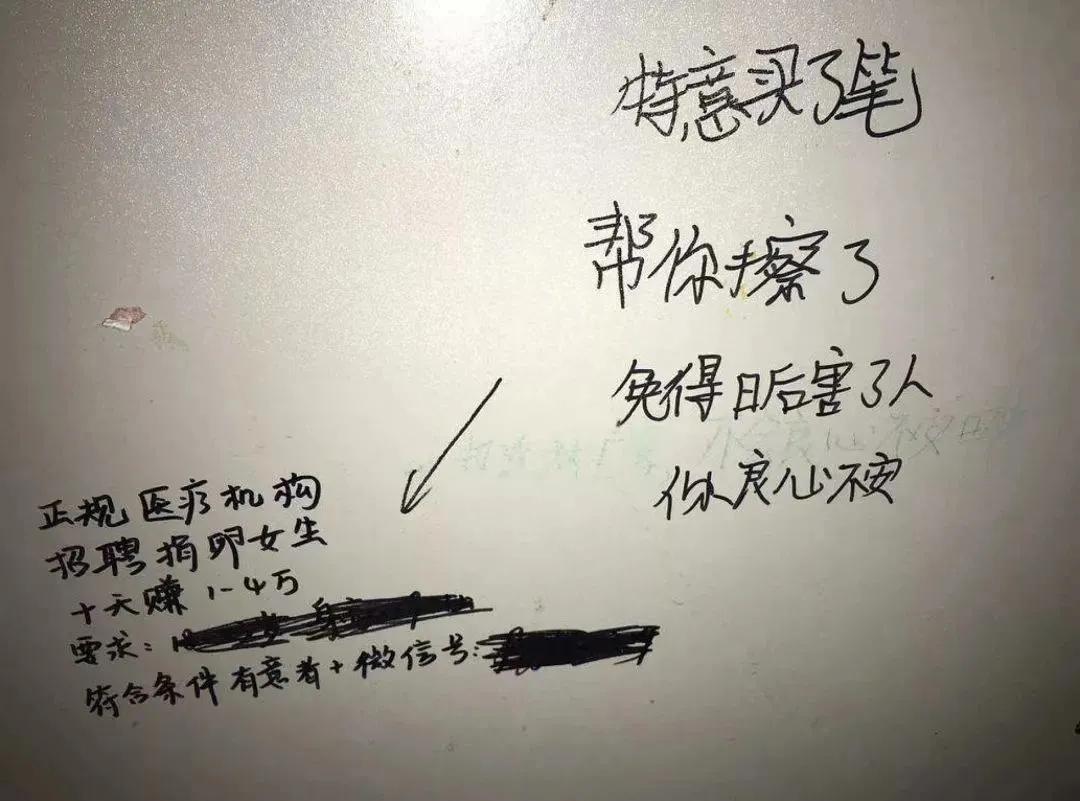 特意买了笔
帮你擦了
免得日后害了人
你良心不安
正规医疗机构
招聘捐卵女生
十天赚1-4万
要求：
符合条件有意者+微信号：